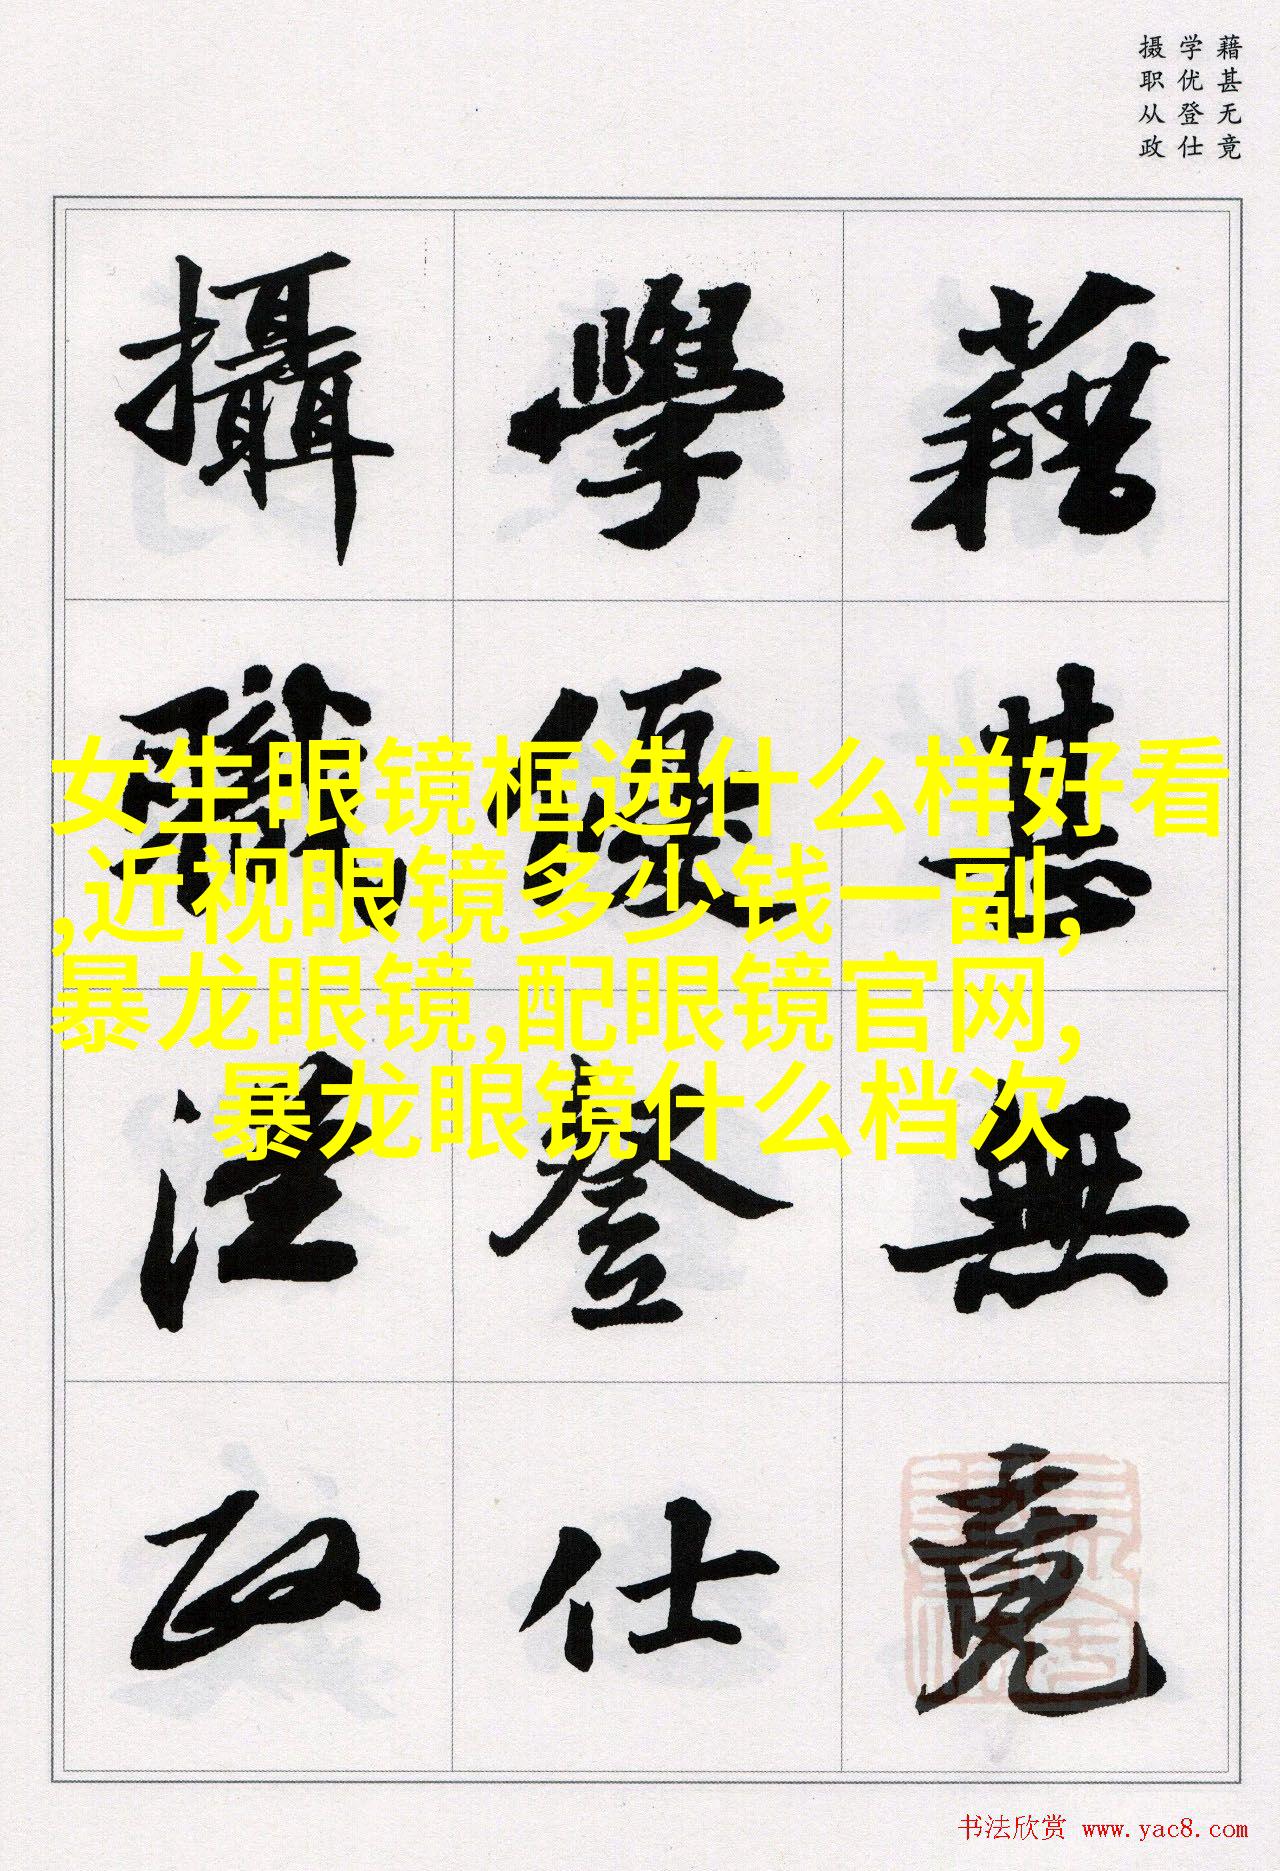 藉甚无竟
学优登仕
摄职从政
藉甚無竟
學優登仕
攝職從政
女生眼镜框选什么样好看
,近视眼镜多少钱一副,
暴龙眼镜,配眼镜官网,
暴龙眼镜什么档次
书法欣赏 www.yac8.com